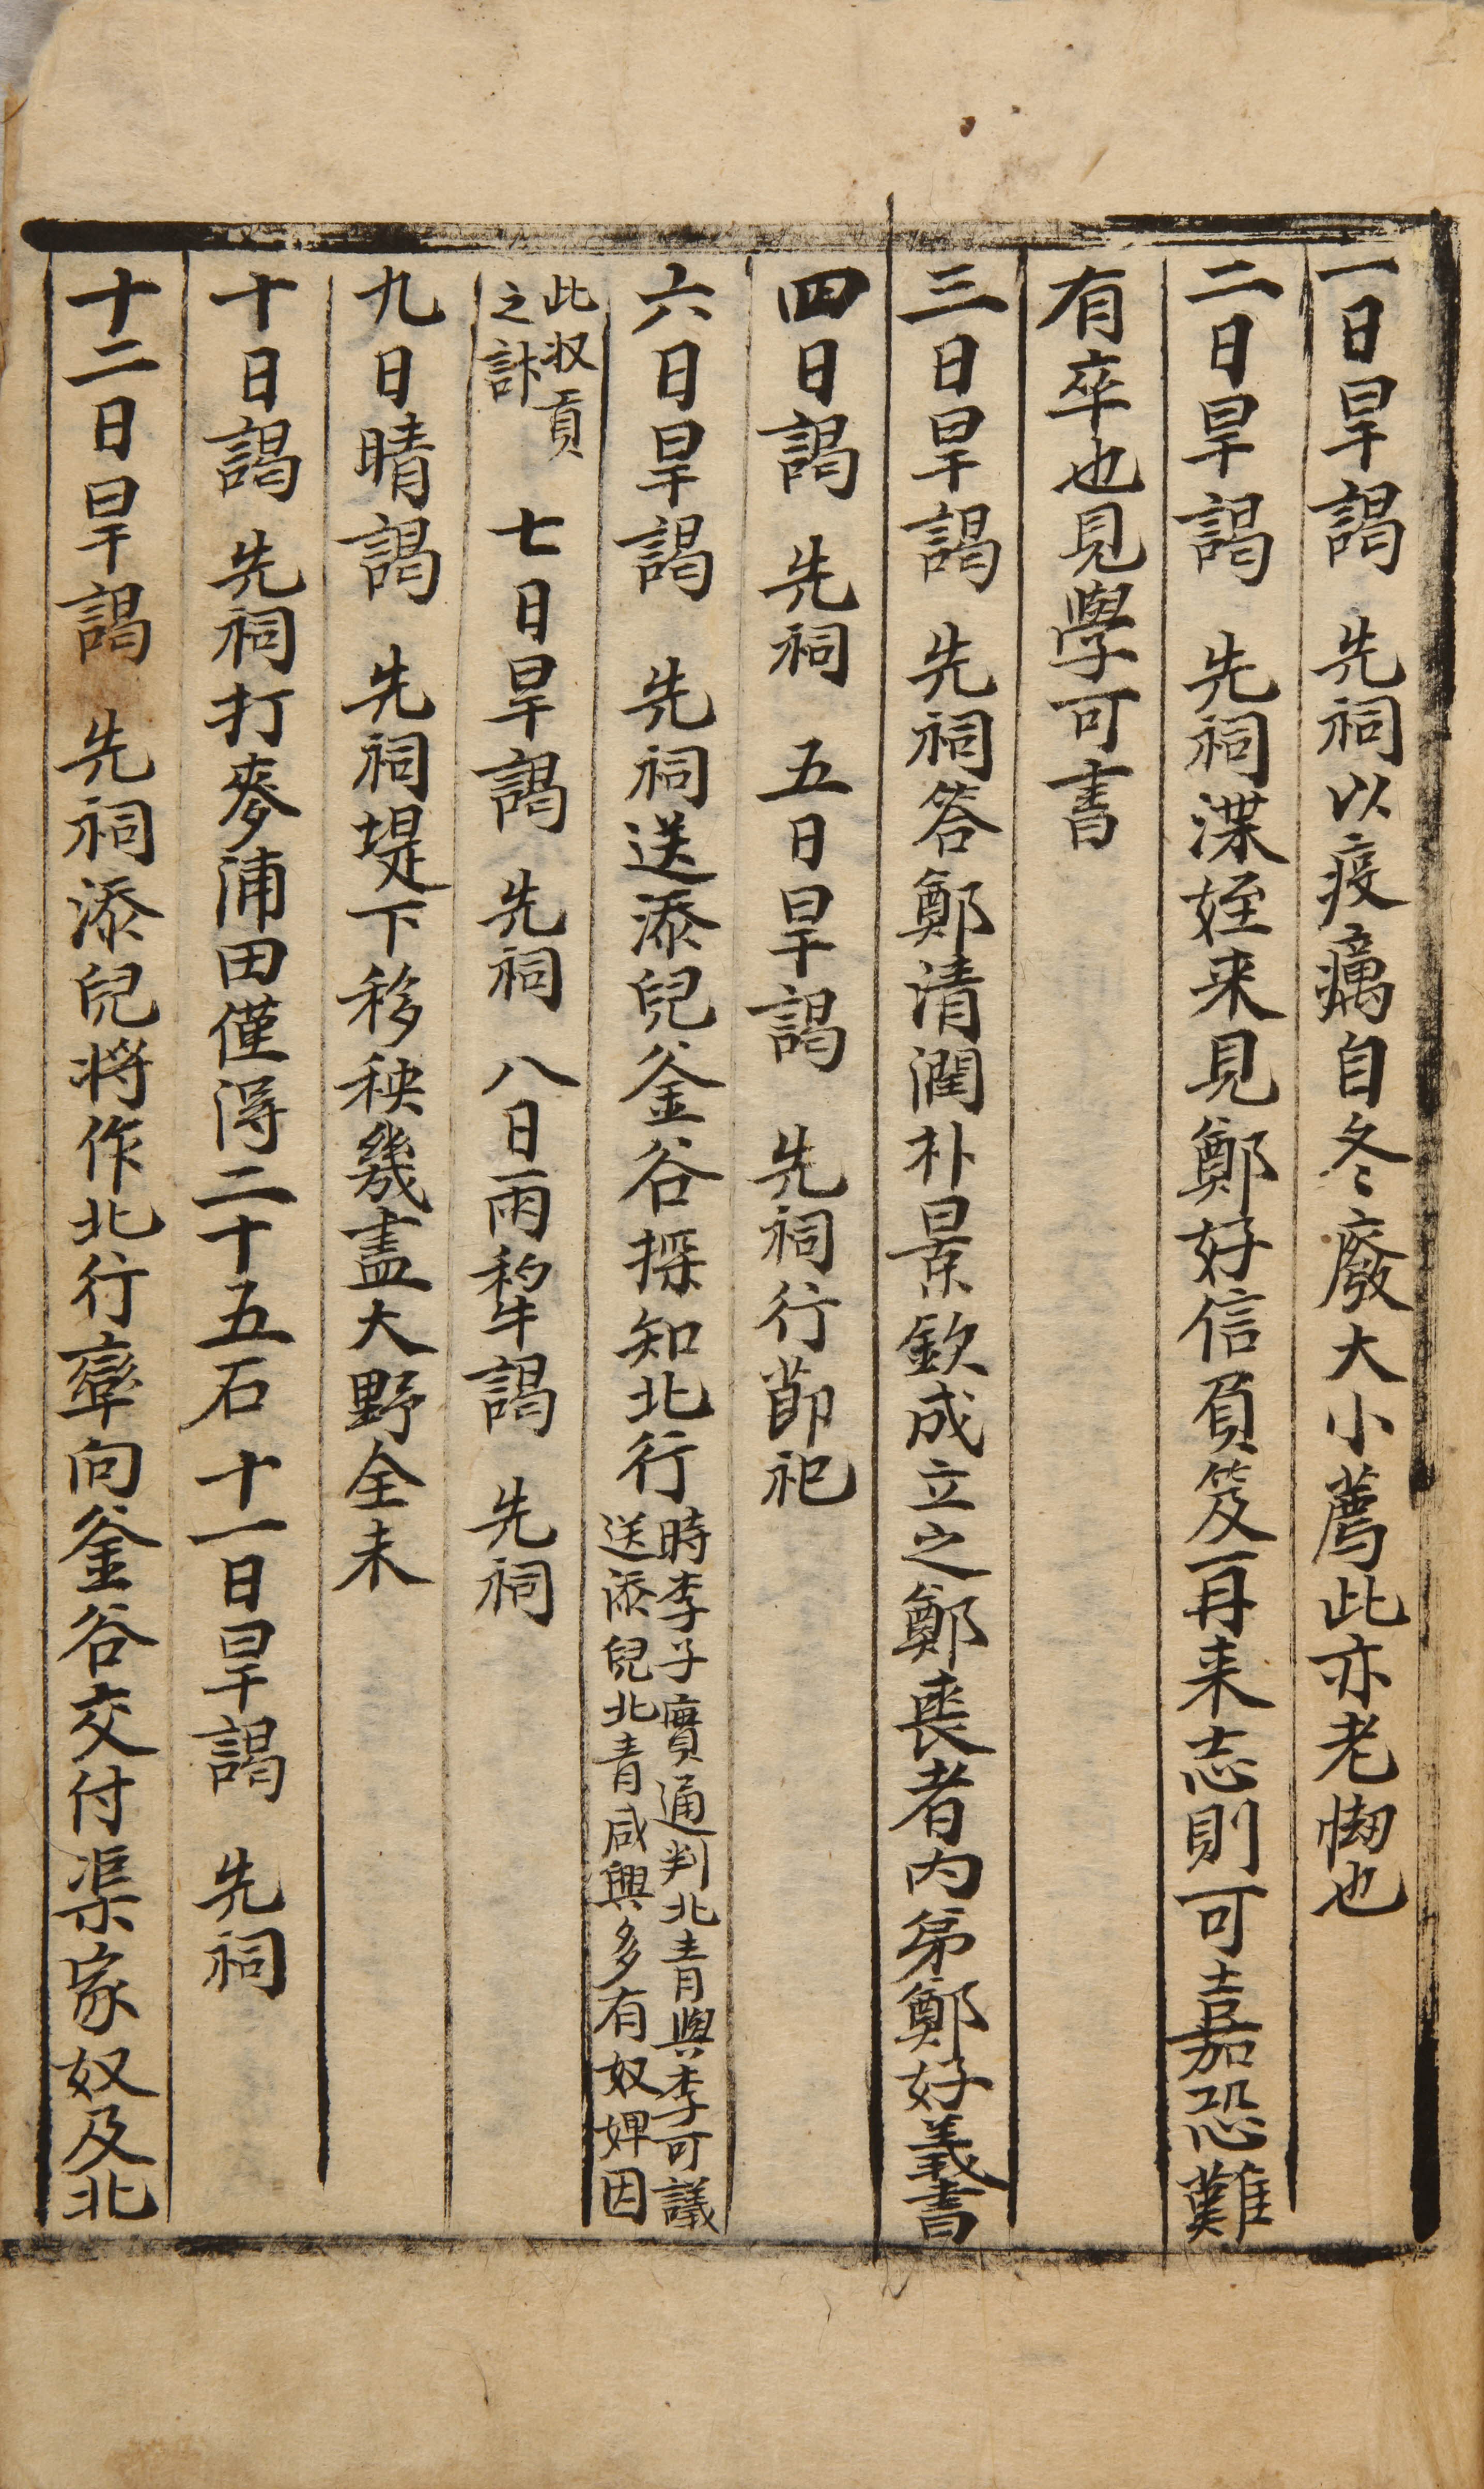 一日旱謁　先祠以疫癘自冬廢大小薦此亦老怮也
二日旱謁　先祠渫姪来見鄭好信負笈再来志則可嘉恐難
有卒也見學可書
三日旱謁　先祠答鄭清潤朴景欽成立之鄭喪者内弟鄭好義書
四日謁　先祠　五日旱謁　先祠行莭祀
六日旱謁　先祠送添兒釜谷探知北行時李子實通判北青與李可議
送添兒北青咸興多有奴婢因
此収貢
之計　七日旱謁　先祠　八日雨犂謁　先祠
九日晴謁　先祠堤下移秧幾盡大野全未
十日謁　先祠打麥浦田僅淂二十五石　十一日旱謁　先祠
十二日旱謁　先祠添兒将作北行辜向釜谷交付渠家奴及北